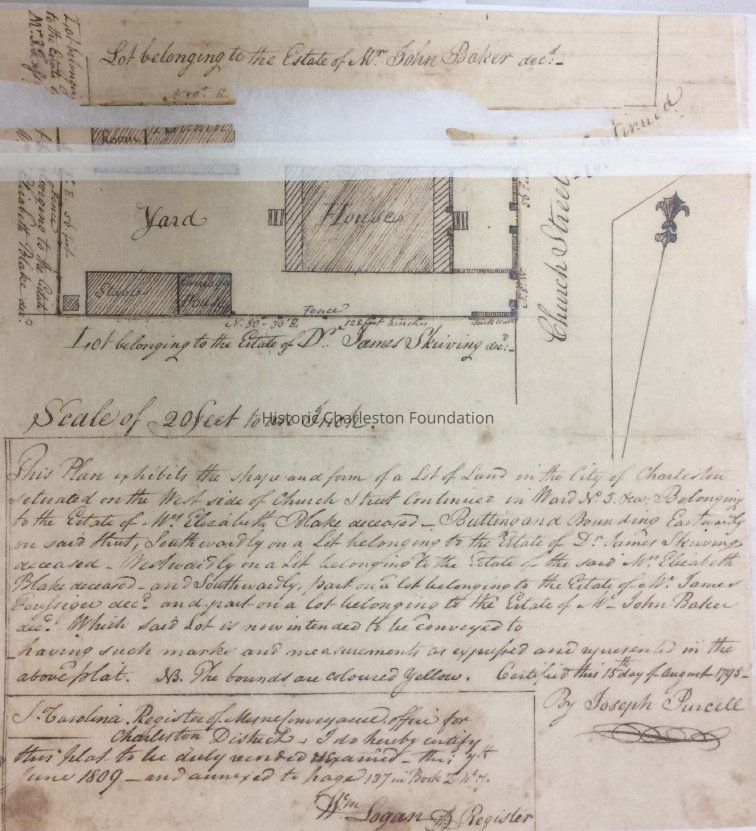 Lot belonging
to the Estate
Lot belonging to the Estate of Mr. John Baker decd.
Yard
House
Stable
Carriage
House
Fence
N. 80°-30' E.
128 feet inches
Brick Wall
Church Street
Continued
Lot belonging to the Estate
Elizabeth Blake decd.
Lot belonging to the Estate of Dr. James Skirving decd.
Scale of 20 feet to an Inch.
Historic Charleston Foundation
This Plan exhibits the shape and form of a Lot of Land in the City of Charleston
situated on the West side of Church Street Continued in Ward No. 5. Belonging
to the Estate of Mrs. Elizabeth Blake deceased - Butting and Bounding Eastwardly
on said street, Southwardly on a Lot belonging to the Estate of Dr. James Skirving
deceased - Westwardly on a Lot belonging to the Estate of the said Mrs. Elizabeth
Blake deceased - and Southwardly, part on a lot belonging to the Estate of Mr. James
decd. and part on a lot belonging to the Estate of Mr. John Baker
decd. Which said Lot is now intended to be conveyed to
having such marks and measurements as expressed and represented in the
above plat. NB. The bounds are coloured Yellow. Certified this 15th day of August 1795-
By Joseph Purcell
So. Carolina. Register of Mesne conveyance office for
Charleston District. I do hereby certify
this plat to be duly recorded & examined - this
June 1809 - and annexed to page 137 in Book Z No. 7.
Wm. Logan Register